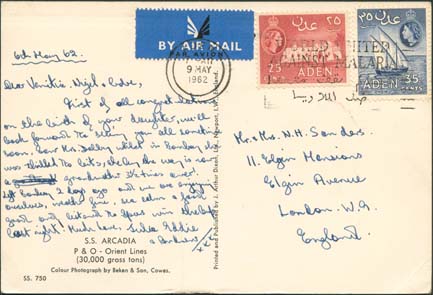 6th May 62.
Dear Venitia, Nigel &
First of all congratulations
on the birth of your daughter, we'll
look forward to seeing you all sometime
soon, saw Mrs. whilst in Bombay, she
was thrilled to bits, she by the way is now
a grandmother times over!
Left Bombay 2 days ago and we are enjoying
ourselves, weather fine, we a
good and to Yours won the
last night! Much love, Eddie
& xxx
S.S. ARCADIA
P & O - Orient Lines
(30,000 gross tons)
Colour Photograph by Beken & Son, Cowes.
SS. 750
Printed and Published by J. Arthur Dixon, Ltd., Newport, I.W., England.
BY AIR MAIL
PAR AVION
9 MAY
1962
UNITED
AGAINST MALARIA
عدن ٢٥
25
ADEN
٣٥ عدن
ADEN 35
CENTS
Mr. & Mrs. N.H. Sanders
11. Elgin Mansions
Elgin Avenue
London. W.9.
England.